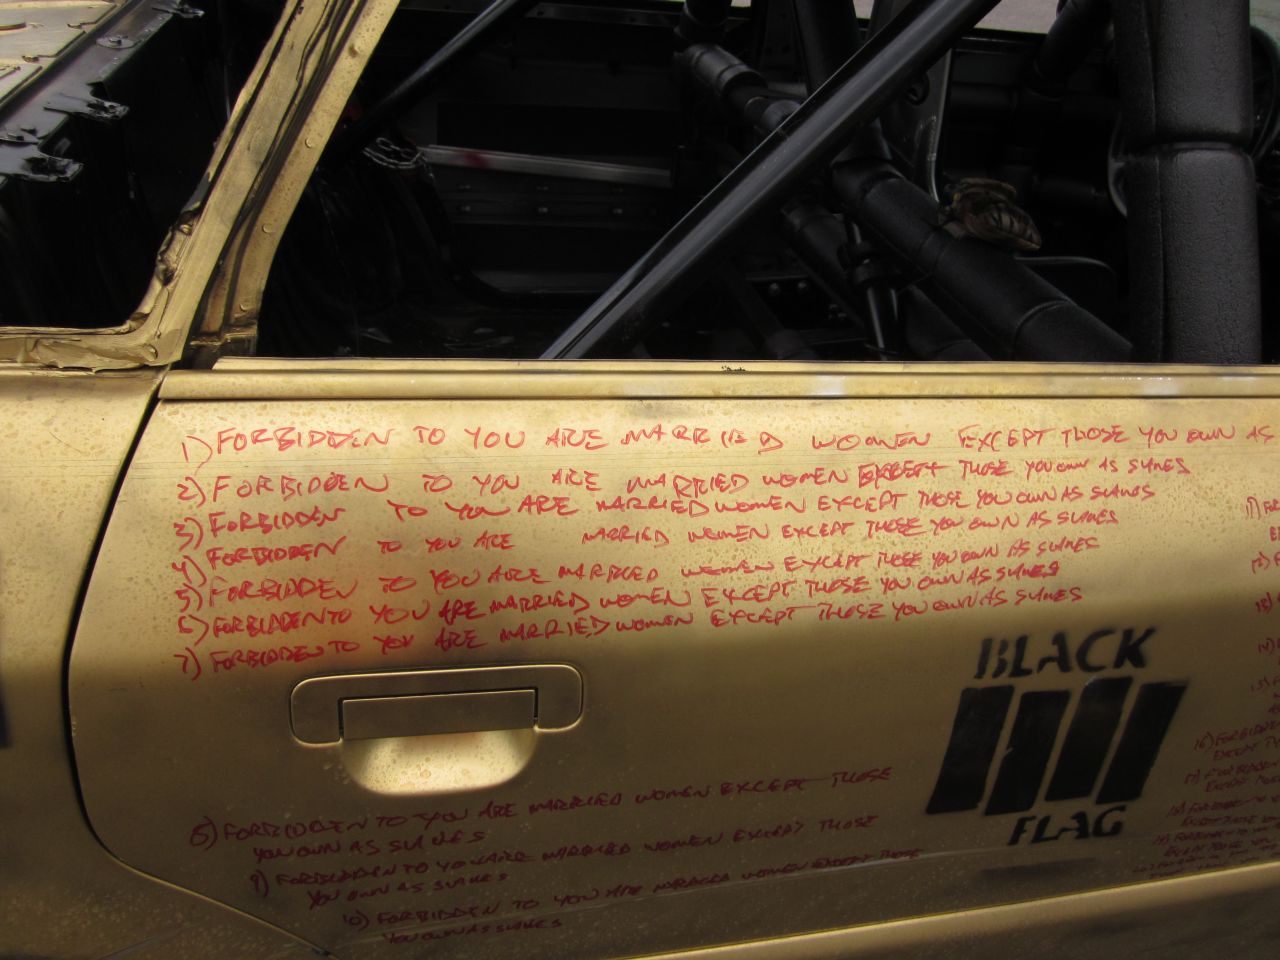 1) FORBIDDEN TO YOU ARE MARRIED WOMEN EXCEPT THOSE YOU OWN AS
2) FORBIDDEN TO YOU ARE MARRIED WOMEN EXCEPT THOSE YOU OWN AS SLAVES
3) FORBIDDEN TO YOU ARE MARRIED WOMEN EXCEPT THOSE YOU OWN AS SLAVES
4) FORBIDDEN TO YOU ARE MARRIED WOMEN EXCEPT THOSE YOU OWN AS SLAVES
5) FORBIDDEN TO YOU ARE MARRIED WOMEN EXCEPT THOSE YOU OWN AS SLAVES
6) FORBIDDEN TO YOU ARE MARRIED WOMEN EXCEPT THOSE YOU OWN AS SLAVES
7) FORBIDDEN TO YOU ARE MARRIED WOMEN EXCEPT THOSE YOU OWN AS SLAVES
BLACK
FLAG
8) FORBIDDEN TO YOU ARE MARRIED WOMEN EXCEPT THOSE
YOU OWN AS SLAVES
9) FORBIDDEN TO YOU ARE MARRIED WOMEN EXCEPT THOSE
YOU OWN AS SLAVES
10) FORBIDDEN TO YOU ARE MARRIED WOMEN EXCEPT THOSE
YOU OWN AS SLAVES
11)
12)
13)
14)
15)
16) FORBIDDEN
EXCEPT
17) FORBIDDEN
EXCEPT
18) FORBIDDEN
EXCEPT THOSE YOU
19) FORBIDDEN TO YOU
EXCEPT THOSE YOU